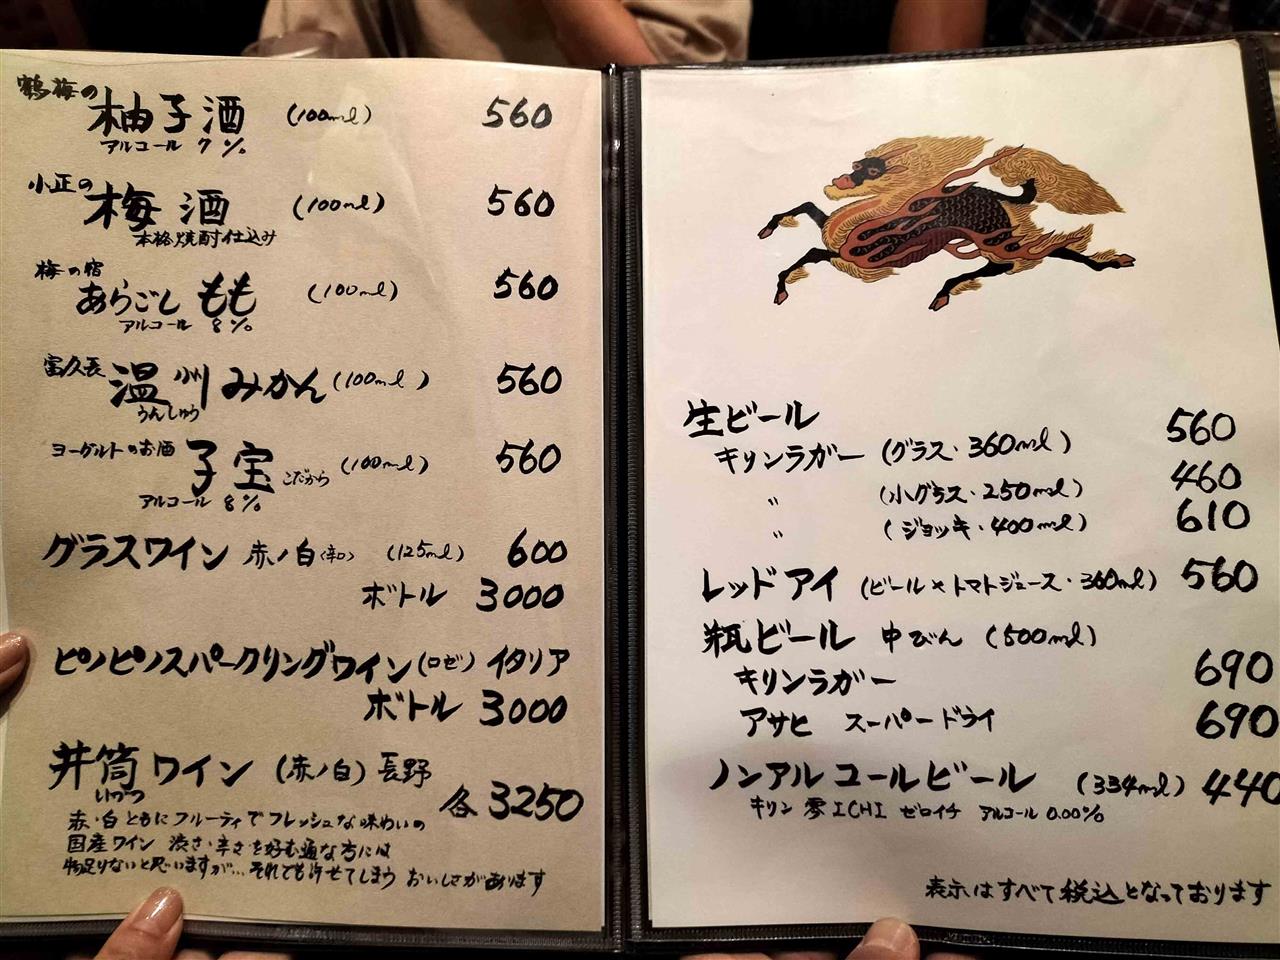 鶴梅の 柚子酒 (100ml) 560
アルコール 7%
小正の 梅酒 (100ml) 560
本格焼酎仕込み
梅の宿 あらごし もも (100ml) 560
アルコール 8%
富久長 温州みかん (100ml) 560
うんしゅう
ヨーグルトのお酒 子宝 こだから (100ml) 560
アルコール 8%
グラスワイン 赤/白(辛口) (125ml) 600
ボトル 3000
ピノピノスパークリングワイン(ロゼ) イタリア
ボトル 3000
井筒ワイン (赤/白) 長野 各 3250
いづつ
赤・白ともにフルーティでフレッシュな味わいの
国産ワイン 渋さ・辛さを好む通な方には
物足りないと思いますが…それでも許せてしまう おいしさがあります
生ビール
キリンラガー (グラス・360ml) 560
〃 (小グラス・250ml) 460
〃 (ジョッキ・400ml) 610
レッドアイ (ビール×トマトジュース・360ml) 560
瓶ビール 中びん (500ml)
キリンラガー 690
アサヒ スーパードライ 690
ノンアルコールビール (334ml) 440
キリン 零ICHI ゼロイチ アルコール 0.00%
表示はすべて税込となっております